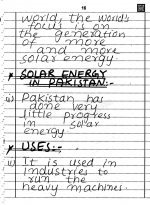 16
world, the world's
focus is on
the generation
of more
and more
solar energy.
* SOLAR ENERGY
IN PAKISTAN:-
i) Pakistan has
done very
little progress
in solar
energy.
* USES:-
i) It is used in
Industries to
run the
heavy machines.